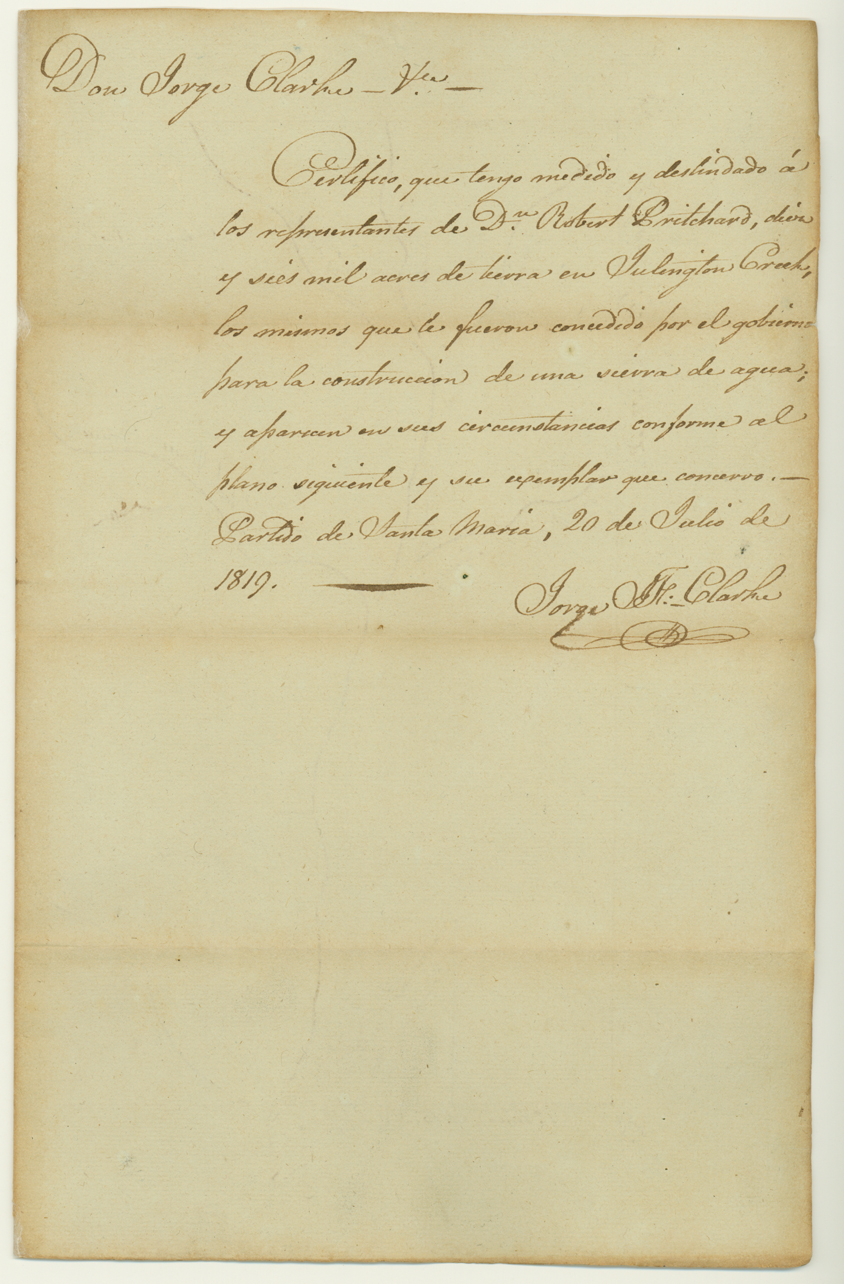 Don Jorge Clarke — &.ca —
Certifico, que tengo medido y deslindado á
los representantes de D.n Robert Pritchard, diez
y siés mil acres de tierra en Julington Creek,
los mismos que le fueron concedido por el gobierno
para la construccion de una sierra de agua;
y aparecen en sus circunstancias conforme al
plano siguiente y su exemplar que concervo. —
Partido de Santa Maria, 20 de Julio de
1819. —
Jorge J. F. Clarke